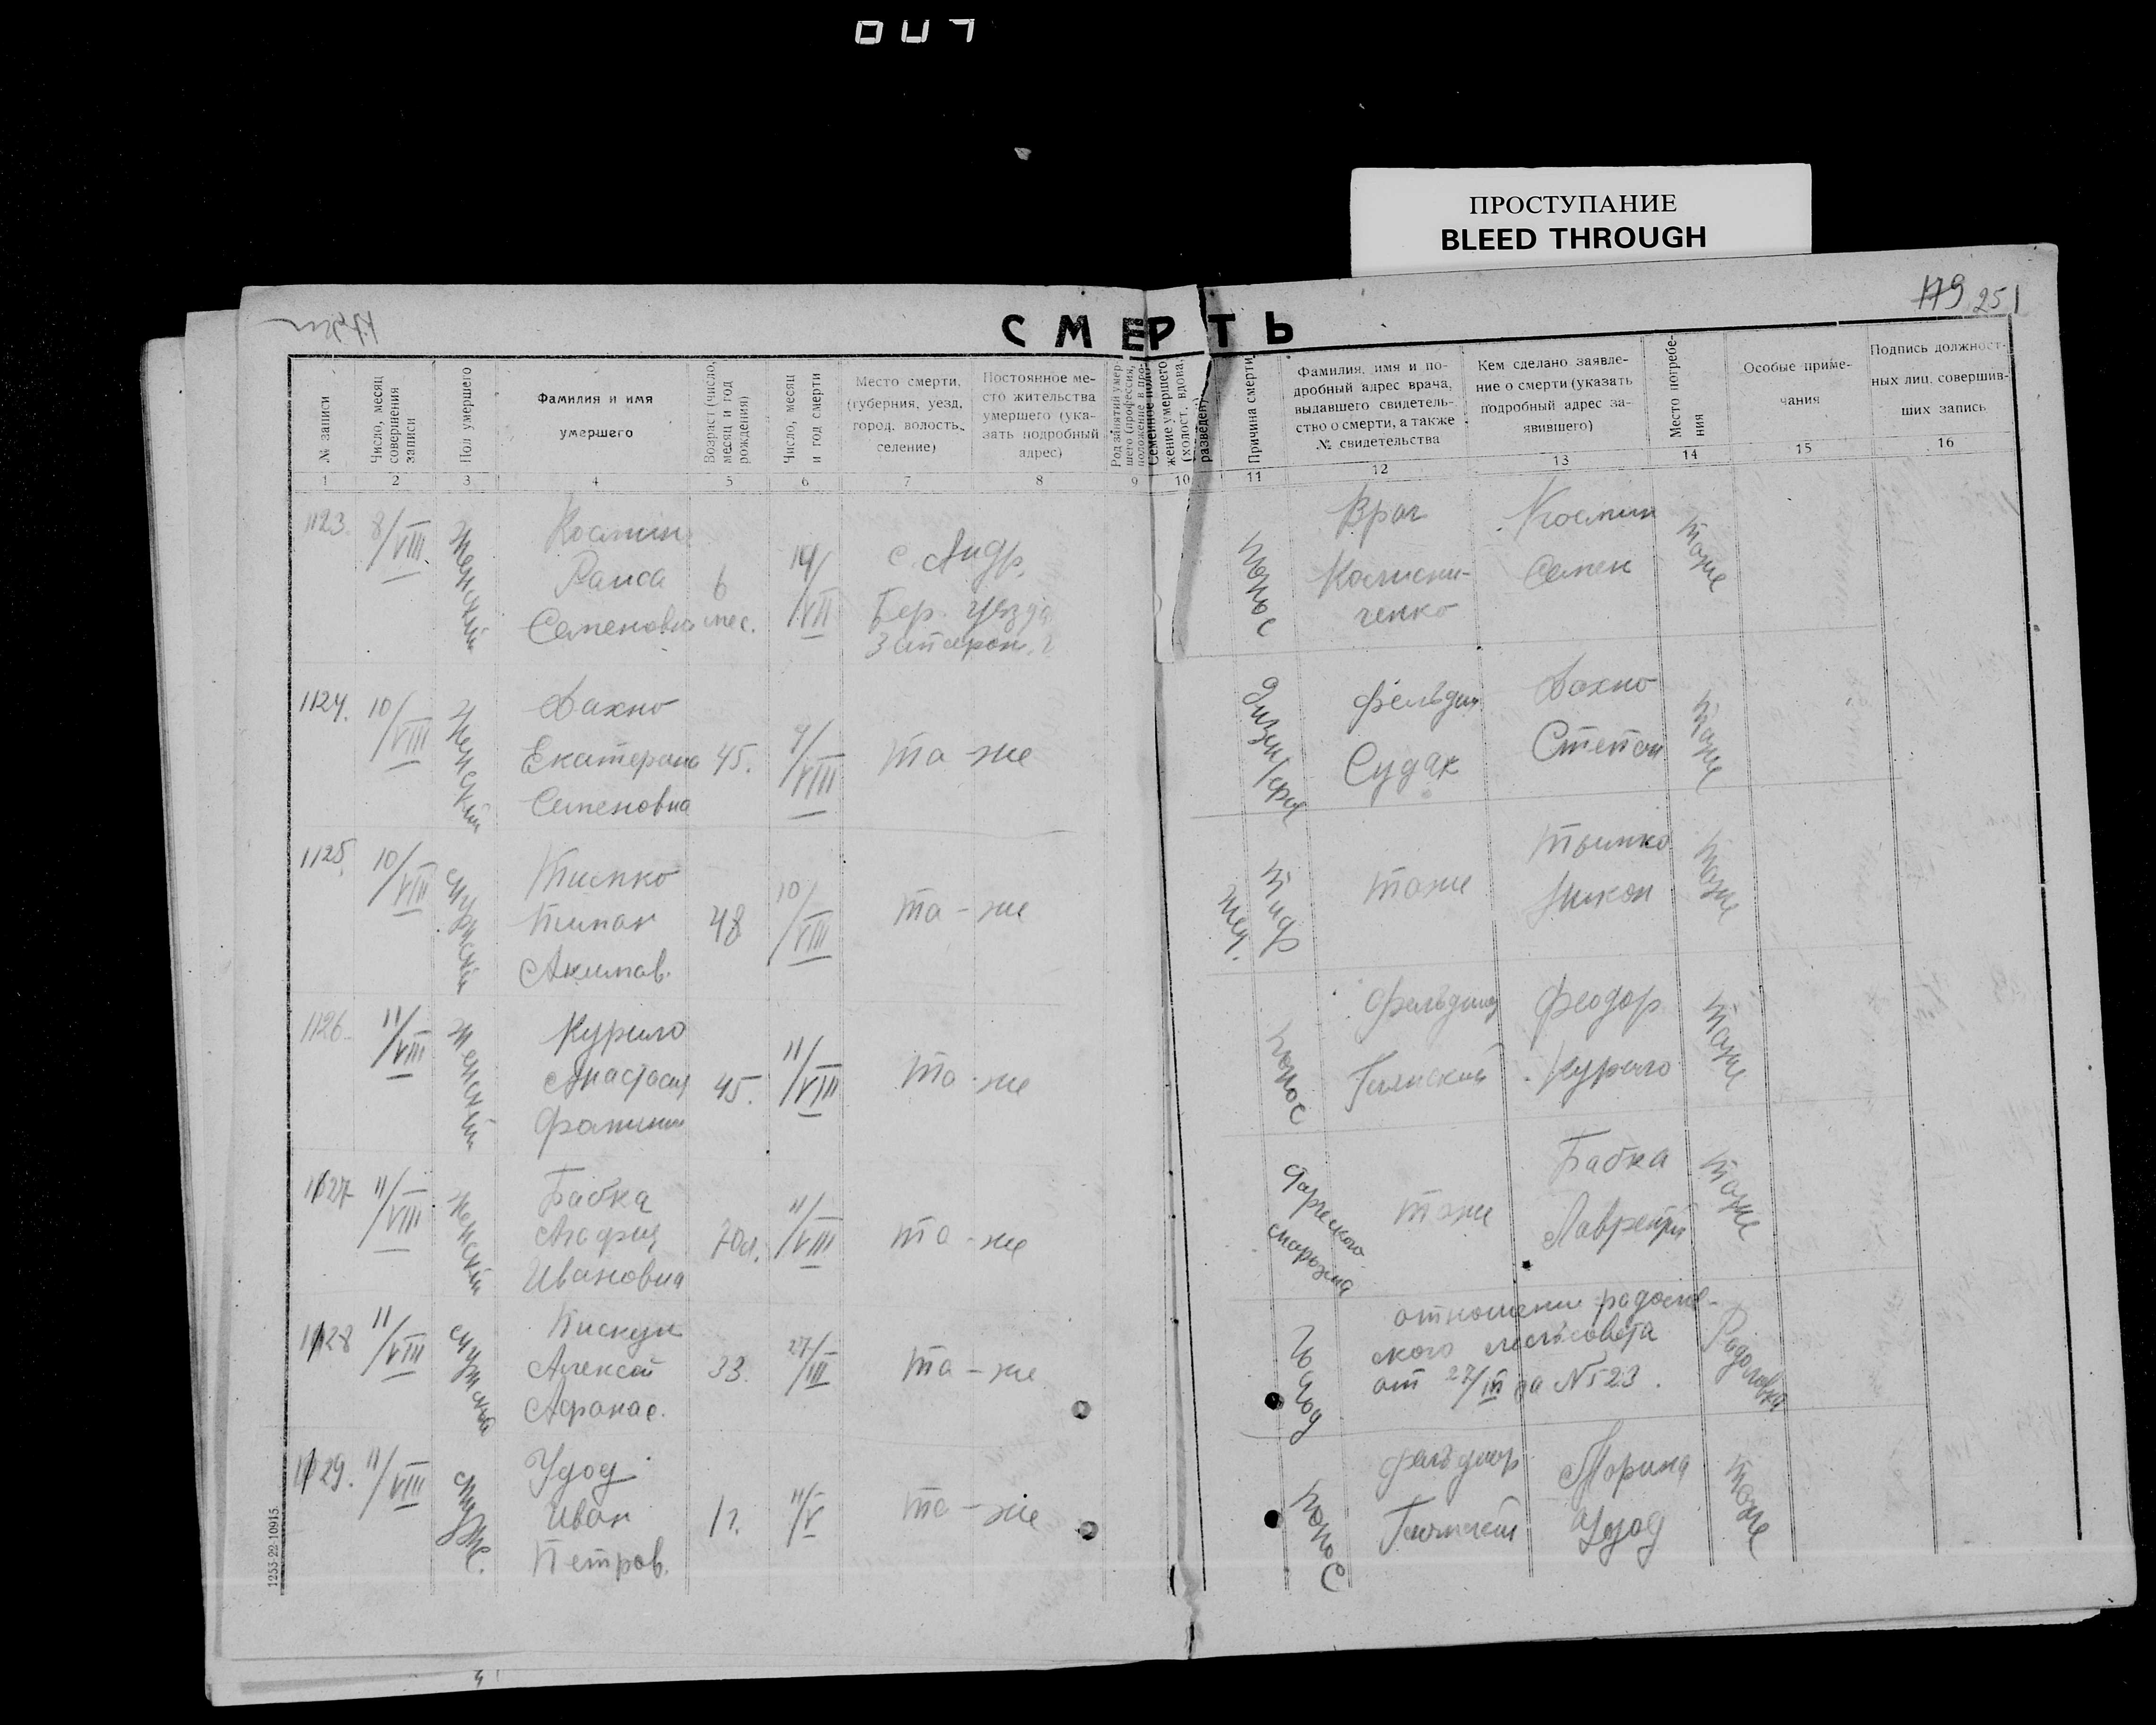 ПРОСТУПАНИЕ
BLEED THROUGH
179 251
СМЕРТЬ
№ записи
Число, месяц совершения записи
Пол умершего
Фамилия и имя
умершего
Возраст (число, месяц и год рождения)
Число, месяц и год смерти
Место смерти,
(губерния, уезд,
город, волость,
селение)
Постоянное ме-
сто жительства
умершего (ука-
зать подробный
адрес)
Род занятий умер-
шего (профессия,
положение в про-
Семейное поло-
жение умершего
(холост, вдова,
разведен)
Причина смерти
Фамилия, имя и по-
дробный адрес врача,
выдавшего свидетель-
ство о смерти, а также
№ свидетельства
Кем сделано заявле-
ние о смерти (указать
подробный адрес за-
явившего)
Место погребе-
ния
Особые приме-
чания
Подпись должност-
ных лиц, совершив-
ших запись
1 2 3 4 5 6 7 8 9 10 11 12 13 14 15 16
1123 8/VIII Женский
Костин
Раиса
Семеновна
6
мес.
19/VII
с. Андр.
Бер. уезда
Запорож. г
понос
Врач
Колисни-
ченко
Костин
Семен
тоже
1124. 10/VIII Женский
Дахно
Екатерина
Семеновна
45.
9/VIII
та-же
дизентерия
фельдш
Судак
Дахно
Степан
тоже
1125, 10/VIII мужский
Тимко
Акимов.
48
10/VIII
та-же
тиф
тоже
Никон
тоже
1126 11/VIII Женский
Курило
Анастасия
45.
11/VIII
та-же
понос
Фельдшер
Феодор
Курило
тоже
1127 11/VIII Женский
Бабка
Агафия
Ивановна
70л.
11/VIII
та-же
тоже
Бабка
Лаврентий
тоже
1128 11/VIII мужской
Пискун
Алексей
Афанас.
33.
27/III
та-же
голод
отношение
ского сельсовета
от 27/III за №523.
1129. 11/VIII мужс.
Удод
Иван
Петров.
1г.
11/V
та-же
понос
фельдшер
Марина
Удод
тоже
1253-22-10915